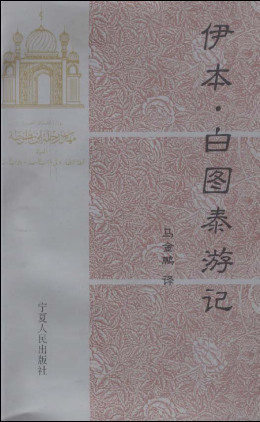 伊本·白图泰游记
马金鹏 译
宁夏人民出版社